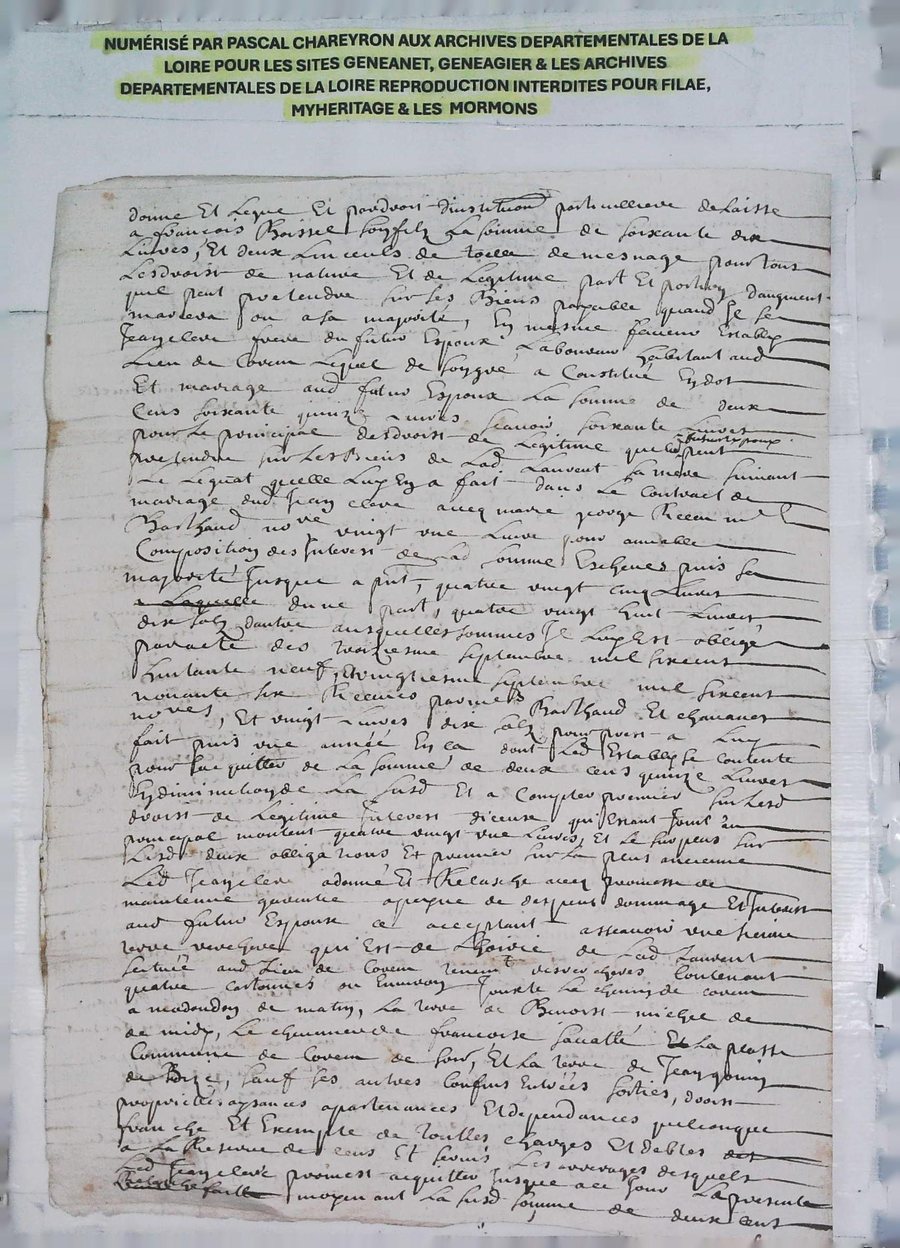 NUMÉRISÉ PAR PASCAL CHAREYRON AUX ARCHIVES DEPARTEMENTALES DE LA
LOIRE POUR LES SITES GENEANET, GENEAGIER & LES ARCHIVES
DEPARTEMENTALES DE LA LOIRE REPRODUCTION INTERDITES POUR FILAE,
MYHERITAGE & LES MORMONS
donne Et Legue Et par droit dinstitution particulliere delaisse
a francois son filz La somme de soixante dix
Livres, Et deux Linceuls de toille de mesnage pour tous
Lesdroist de nature Et de Legitime part Et portion daugment
quil peut pretendre sur ses Biens payable quand Il se
mariera ou a sa majorite, En mesme faveur Estably
Jean clere frere du futur Espoux Laboureur habitant aud
Lieu de Coreu Lequel de son gre a Constitué En dot
Et mariage aud futur Espoux La somme de deux
Cens soixante quinze Livres scavoir soixante Livres
pour Le principal desdroist de Legitime que led futur Espoux peut
pretendre sur Les Biens de Lad Laurent sa mere suivant
Le Legat quelle Luy En a fait dans Le Contract de
mariage dud Jean clere avecq marie Receu
Barthaud nore vingt une Livre pour amiable
Composition des Interest de Lad somme Escheues puis sa
majorité Jusque a pnt, quatre vingt cinq Livres
dune part, quatre vingt huit Livres
dix solz dautre ausquelles sommes Il Luy Est obligé
par acte des troiziesme septembre mil sixcens
huitante neuf, Et vingtiesme septembre mil sixcens
nonante six Receues par mes Barthaud Et chavanes
nores, Et vingt Livres dix solz pour prest a Luy
fait puis une année En ca dont Led Estably se contente
pour sacquitter de La somme de deux cens quinze Livres
En diminution de La susd Et a Compter premier sur Lesd
droist de Legitime Interest diceux qui Estant Joint au
principal montent quatre vingt une Livres, Et Le surplus sur
Lesd deux obligations Et premier sur La plus ancienne
Led Jean clere a donné Et Relasche avec promesse de
maintenue garentie a peyne de despens dommage Et Interest
aud futur Espoux ce acceptant assavoir une sienne
terre qui Est de Lhoirie de Lad Laurent
scituée aud Lieu de Coreu Contenant
quatre cartonnes ou Environ Jouste Le chemin de coreu
a de matin, La terre de Benoist michel de
de midy, Le de francoise La plasse
Commune de Coreu de soir, Et La terre de Jean
de Bize, sauf ses autres Confins Entrées sorties, droist
proprietes aysances apartenances Et dependances quelconque
franche Et Exempte de toutles charges Et debtes
a La Reserve de cens Et servis, Les arrerages desquels
Led Jean clere promest acquitter Jusque a ce Jour La presente
moyenant La susd somme de deux cens